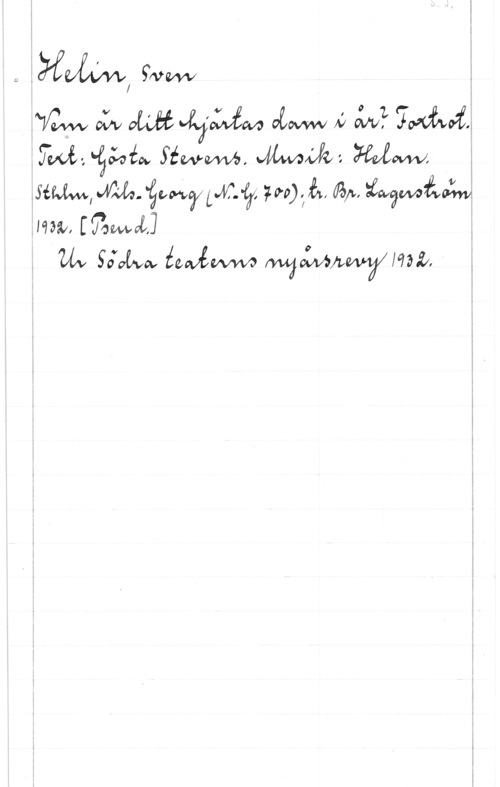 Helin, Sven
Vem är ditt hjärtas dam i år? Foxtrot.
Text: Gösta Stevens. Musik: Helan.
Sthlm, Nils-Georg (N.-G. 700); tr. Br. Lagerström
1932. [Pseud.]
Ur Södra teaterns nyårsrevy 1932.